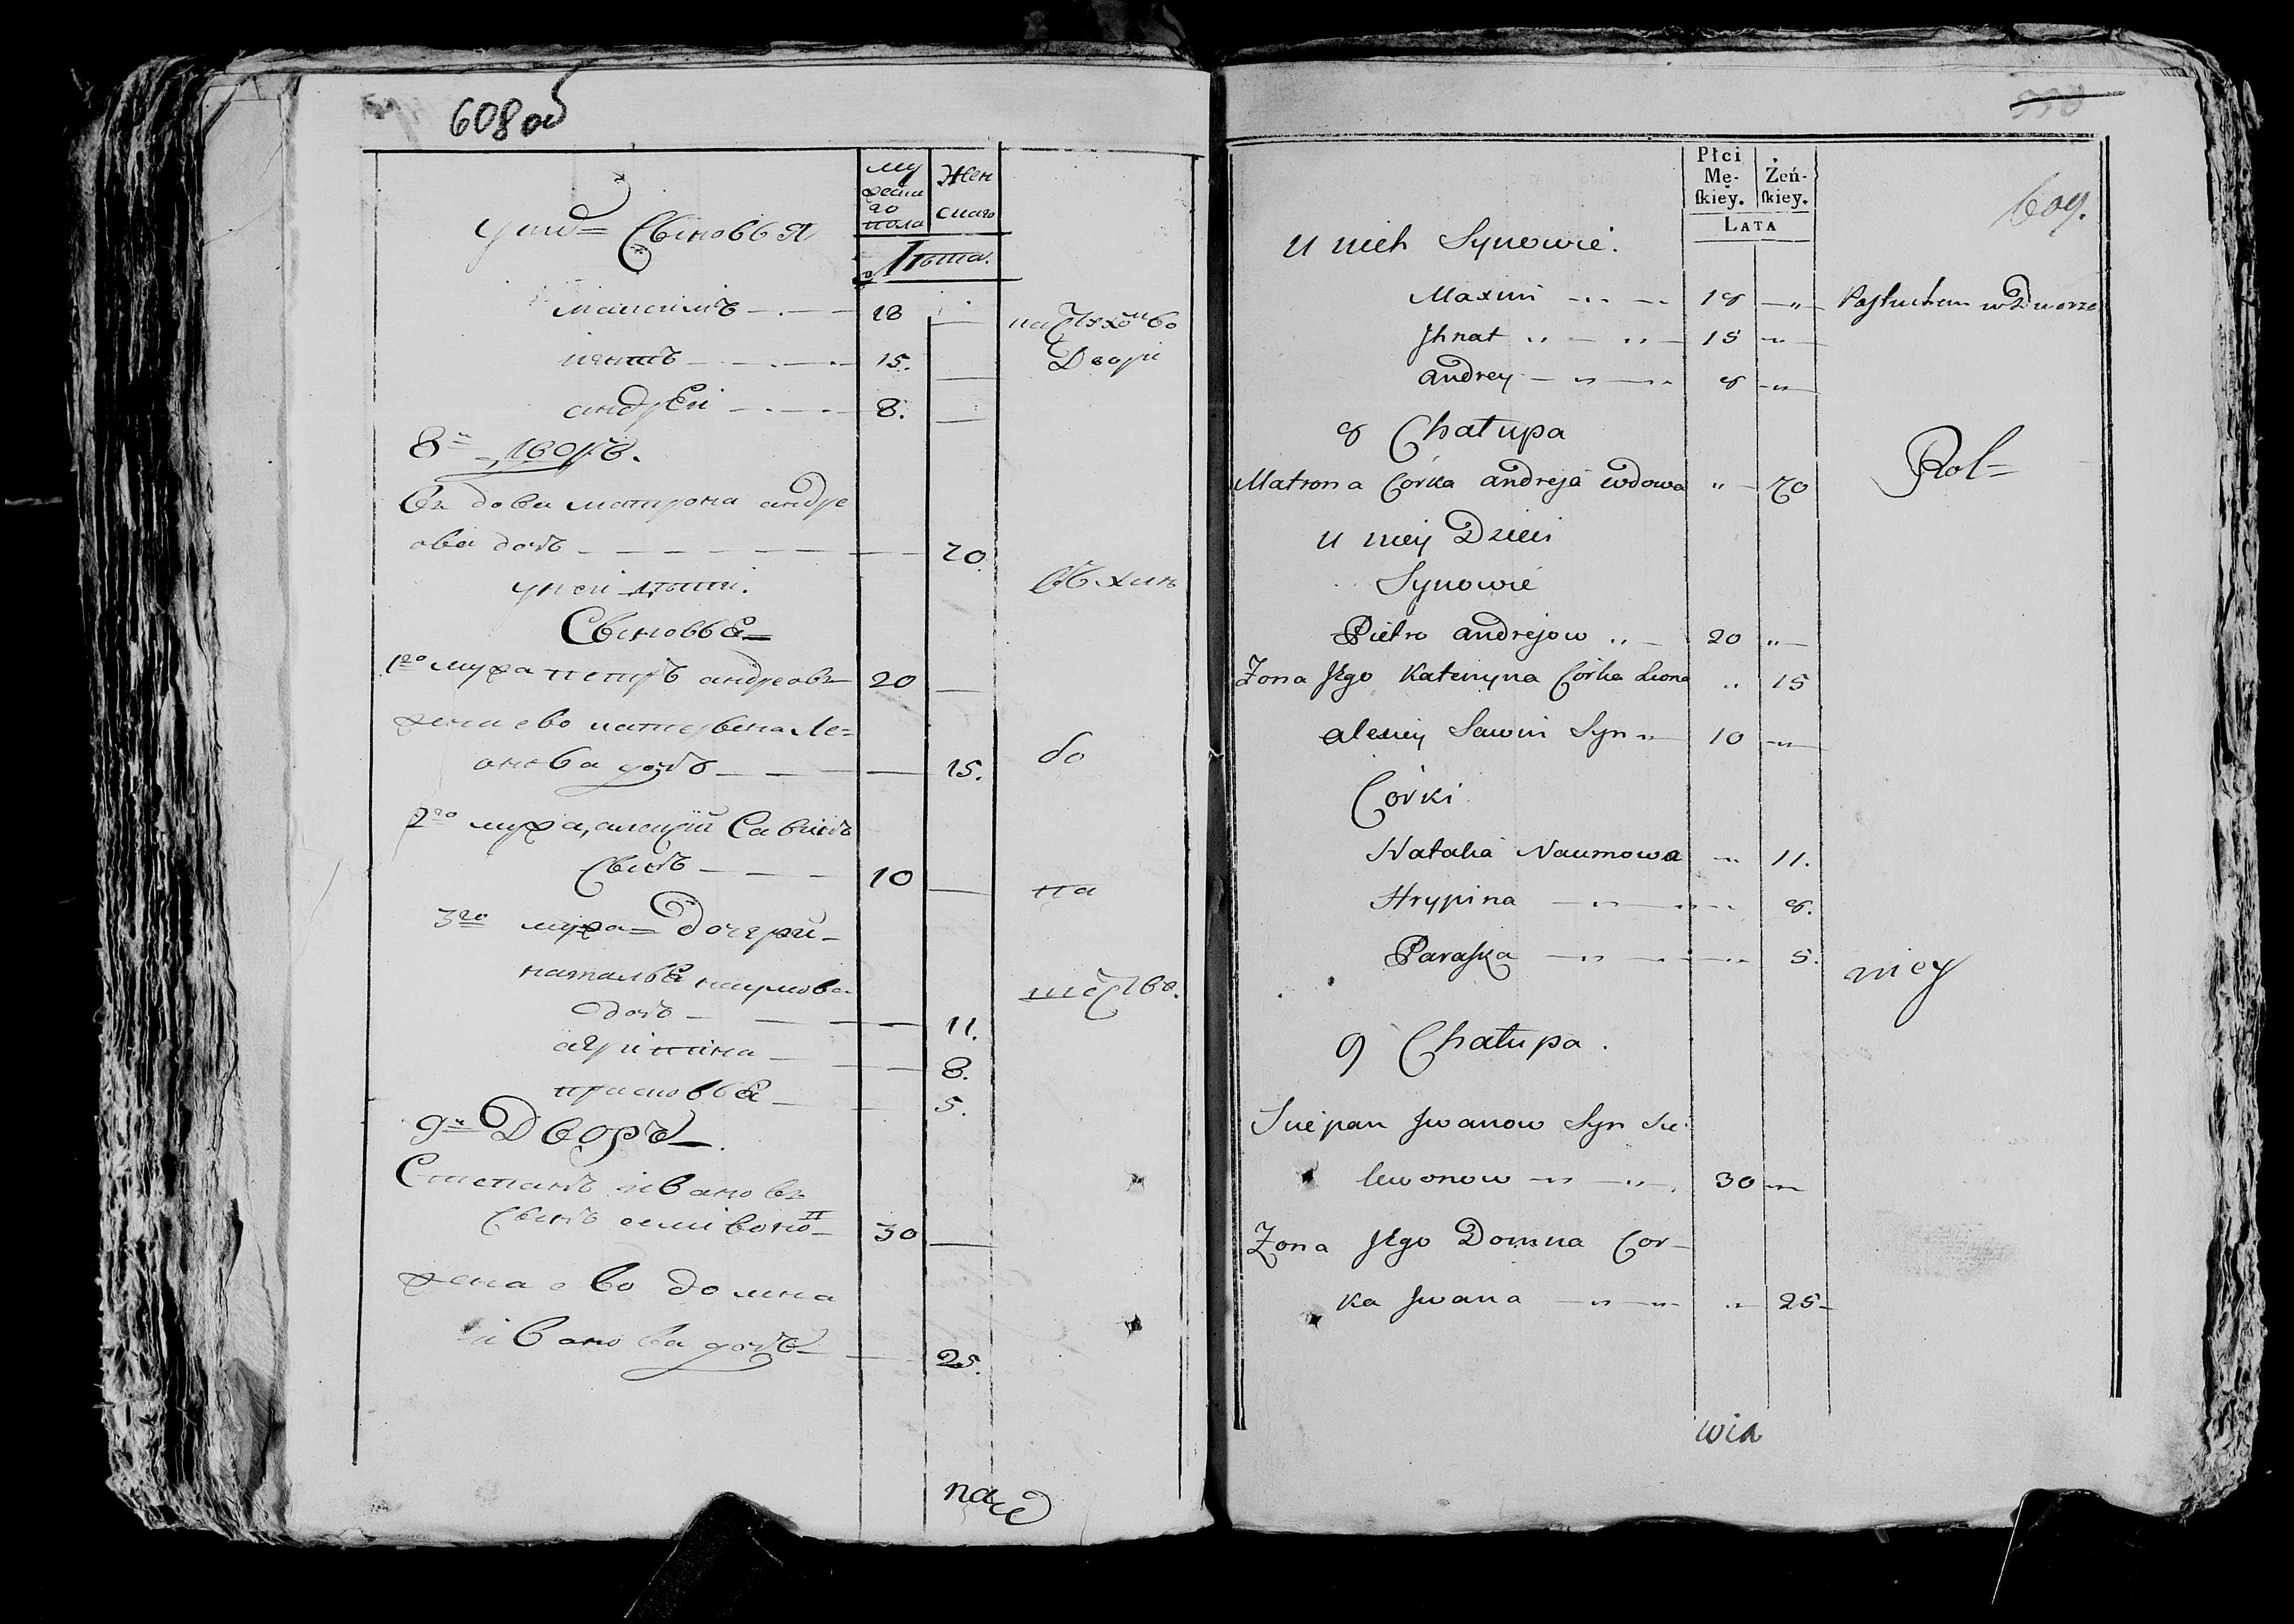 608 об
му
жеска
го
пола
Жен
скаго
Лѣта.
у ни = Сыновья
максимъ 18
на служ
во
Дворе
игнатъ 15.
андрей 8.
8й дворъ.
вдова матрона андре
ова дочь 70
у ней дѣти.
Сыновья
1го мужа петръ андреовъ 20
жена ево катерына Ле=
онова дочь 15.
2го мужа, алексѣй Савинъ
сынъ 10
3го мужа = Дочери
наталья наумова
дочь 11.
агрипина 8.
прасковья 5.
9й Дворъ.
Степанъ ивановъ
сынъ 30
жена ево домна
иванова дочь 25.
Płci
Mę-
ſkiey.
Żeń-
ſkiey.
LATA
609.
U nich Synowie.
Maxim 18 w Dworze
Jhnat 15
andrey 8
8 Chałupa
Rol=
Matrona Córka andreja wdowa 70
u niey Dzieci
Synowie
Pietro andrejow 20
Żona Jego Kateryna Córka Leona 15
alexiey Sawin Syn 10
Córki
Natalia Naumowa 11.
Hrypina 8.
Paraſka 5.
niey
9 Chałupa.
Sciepan Jwanow Syn Sie
lewonow 30
Żona Jego Domna Cor-
ka Jwana 25